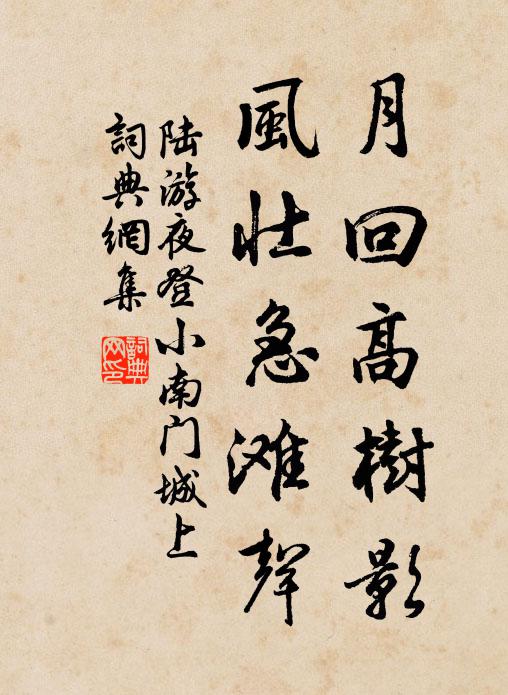 月回高樹影
風壮急滩聲
陆游夜登小南门城上
詞典網集
詞典网印